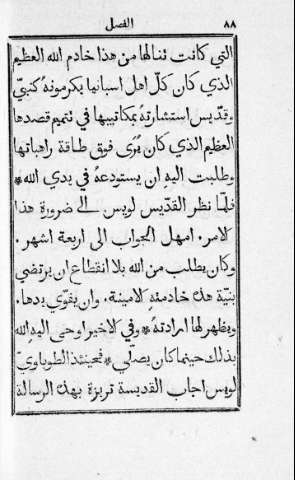 ٨٨ الفصل
التي كانت تنالها من هذا خادم الله العظيم
الذي كان كلّ اهل اسبانيا يكرمونه كنبيّ
وقدّيس استشارته بمكاتيبها في تتميم قصدها
العظيم الذي كان يُرَى فيق طاقة راهباتها
وطلبت اليهِ ان يستودعه في يدي الله *
فلمّا نظر القدّيس لويس الى ضرورة هذا
كلامر . امهل الجواب الى اربعة اشهر .
وكان يطلب من الله بلا انقطاع ان يرتضي
بنيّة هذه خادمتهِ كلامينة . وان يقوّي يدها .
ويظهر لها ارادته * وفي كلاخير اوحى اليهِ الله
بذلك حينما كان يصلي * فحينئذ الطوباويّ
لويس اجاب القديسة تريزة بهذه الرسالة